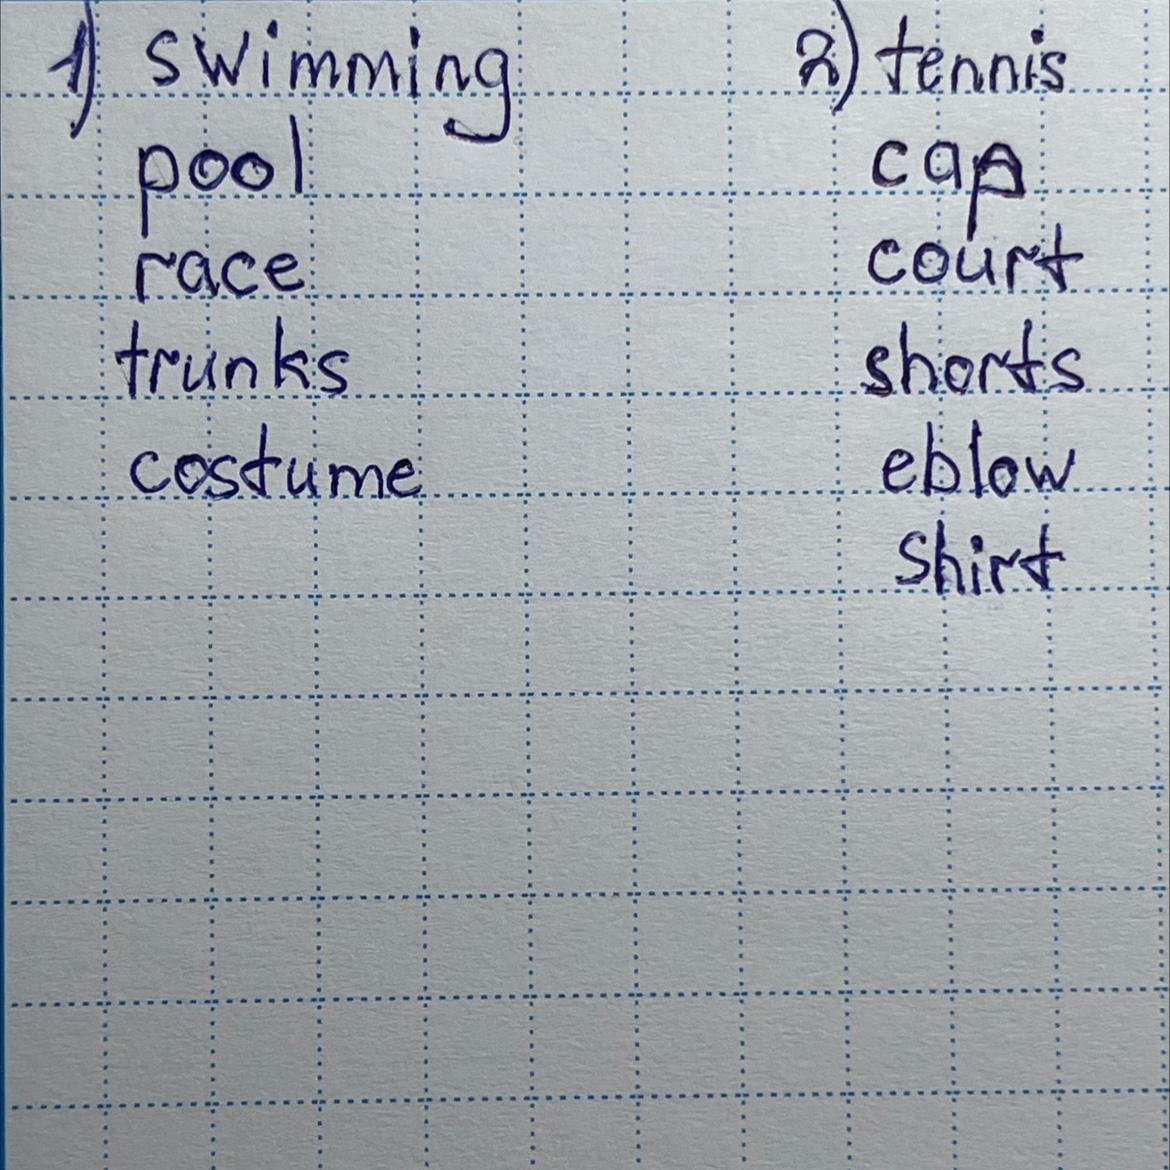 1) swimming
pool
race
trunks
costume
2) tennis
cap
court
shorts
eblow
shirt